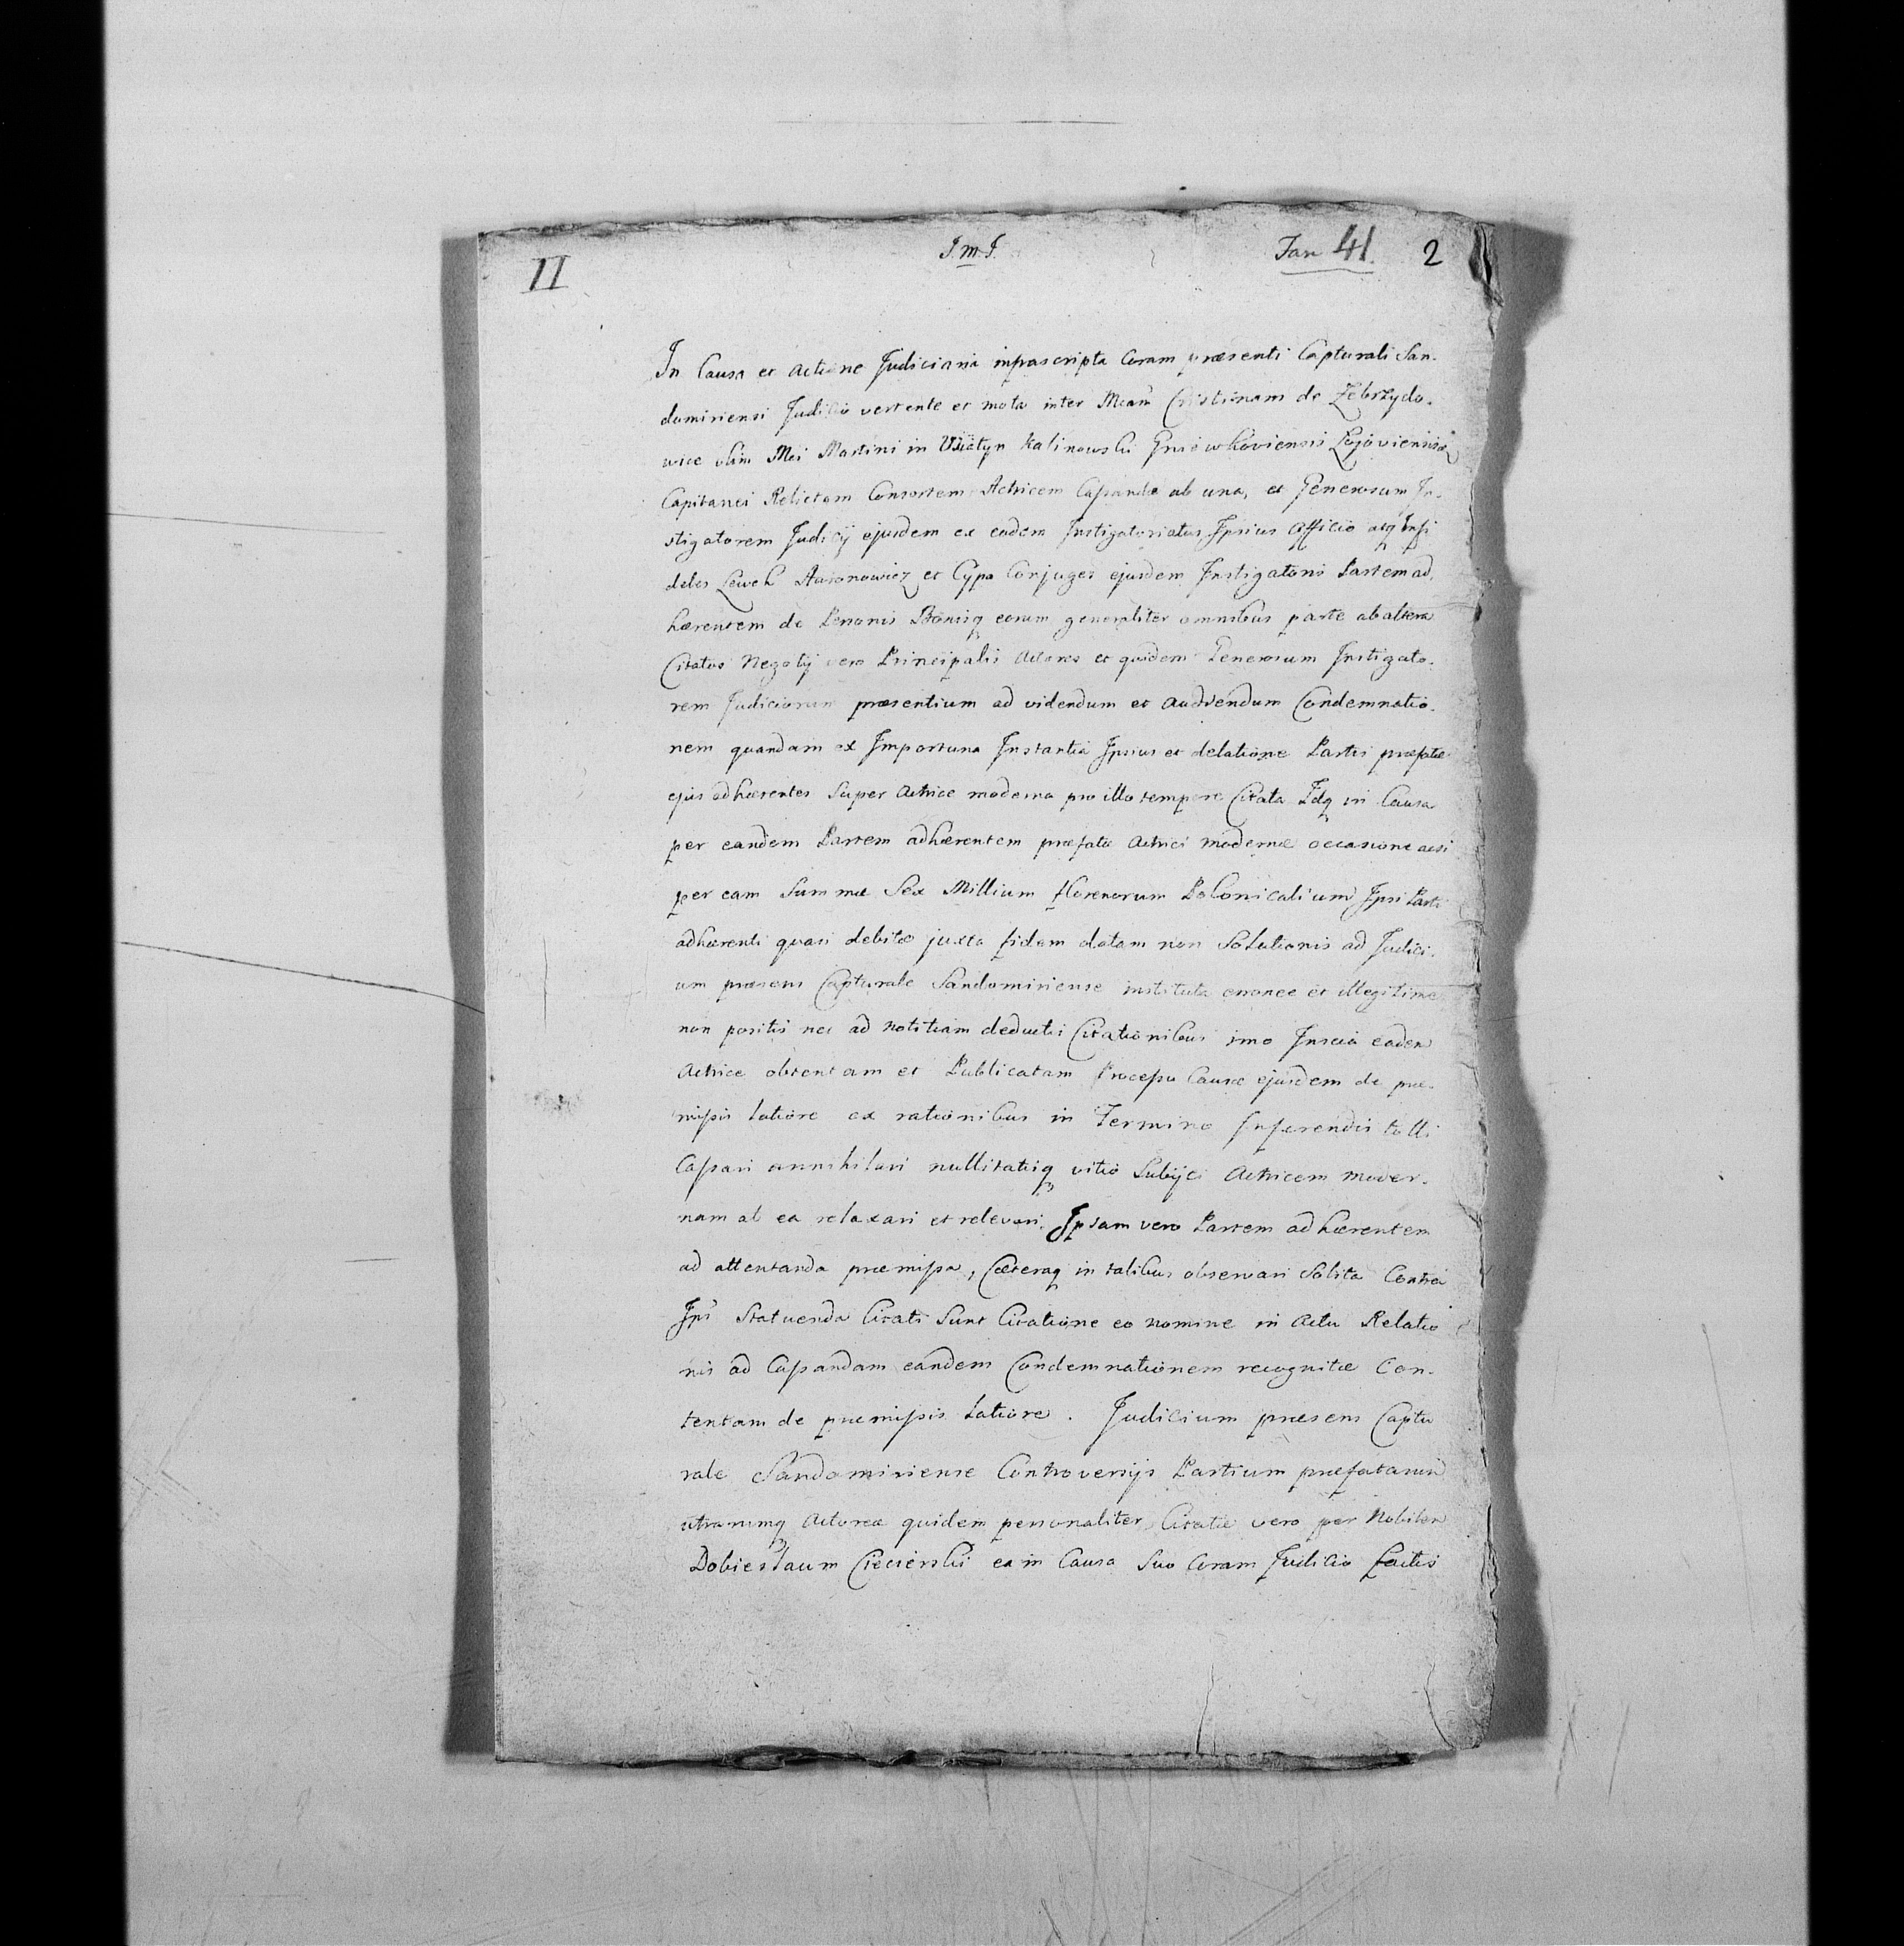 II
J.M.J.
Fan 41. 2
In Causa et Actione Judiciaria infrascripta Coram præsenti Capturali San-
domiriensi Judicio vertente et mota inter Mcam Cristinam de Zebrzydo-
wice olim Mci Martini in Husiatyn Kalinowski Gniewkoviensis Łojoviensis
Capitanei Relictam Consortem Actricem Cassandæ ab una, et Generosum In-
stigatorem Judicij ejusdem ex eodem Instigatoriatus Ipsius Officio atq Infi
deles Lewek Aaronowicz et Cypa Conjuges ejusdem Instigatoris Partem ad,
hærentem de Personis Bonisq eorum generaliter omnibus parte ab altera
Citatos Negotij vero Principalis Actores et quidem Generosum Instigato-
rem Judiciorum præsentium ad videndum et Audiendum Condemnatio-
nem quandam ex Importuna Instantia Ipsius et delatione Partis præfatæ
ejus adhærentes Super Actrice moderna pro illo tempore Citata Idq in Causa
per eandem Partem adhærentem præfatæ Actrici modernæ occasione acsi
per eam Summæ Sex Millium florenorum Polonicalium Ipsi Parti
adhærenti quasi debitæ juxta fidem datam non Solutionis ad Judici-
um præsens Capturale Sandomiriense instituta erronee et illegitime
non positis nec ad notitiam deductis Citationibus imo Inscia eadem
Actrice obtentam et Publicatam Processu Causæ ejusdem de præ-
missis latiore ex rationibus in Termino Inferendis tolli
Cassari annihilari nullitatisq vitio Subijci Actricem moder-
nam ab ea relaxari et relevari. Ipsam vero Partem adhærentem
ad attentanda præmissa, Cæteraq in talibus observari Solita Contra
Ips Statuenda Citati Sunt Citatione eo nomine in Actu Relatio
nis ad Cassandam eandem Condemnationem recognitæ Con-
tentam de præmissis latiore. Judicium præsens Captu
rale Sandomiriense Controversijs Partium præfatarum
utrarumq Actoreæ quidem personaliter, Citatæ vero per Nobilem
Dobiesłaum Ciecierski ea in Causa Suo Coram Judicio factis